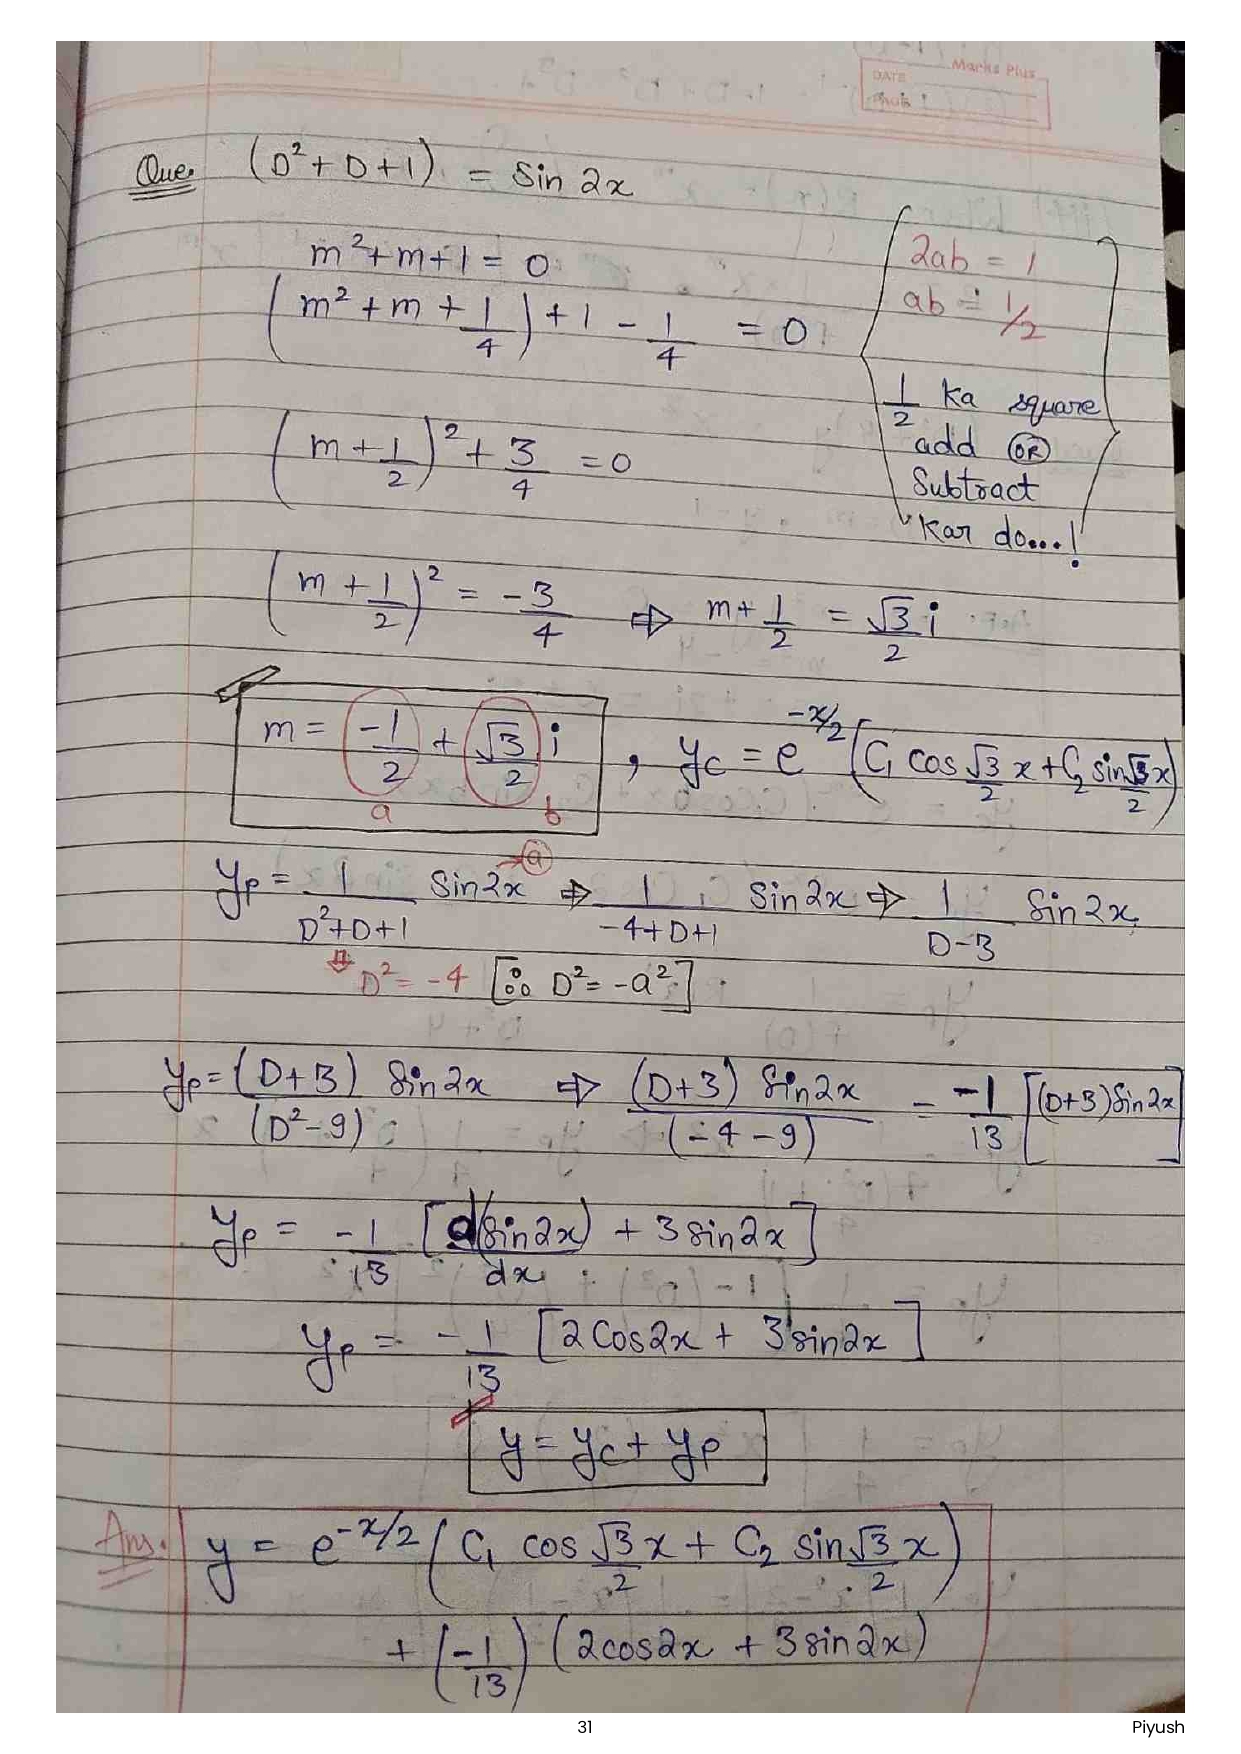 Marks Plus
DATE
Que. (D² + D + 1) = Sin 2x
m² + m + 1 = 0
(m² + m + 1/4) + 1 - 1/4 = 0
2ab = 1
ab = 1/2
1/2 ka square
add OR
Subtract
kar do...!
(m + 1/2)² + 3/4 = 0
(m + 1/2)² = -3/4 ⇒ m + 1/2 = √3/2 i
m = -1/2 + √3/2 i , yc = e^-x/2 (C₁ cos √3/2 x + C₂ sin √3/2 x)
a b
yp = 1/(D²+D+1) Sin2x → a ⇒ 1/(-4+D+1) Sin 2x ⇒ 1/(D-3) Sin 2x
⇓ D² = -4 [∵ D² = -a²]
yp = (D+3) Sin2x/(D²-9) ⇒ (D+3) Sin2x/(-4-9) = -1/13 [(D+3)Sin2x]
yp = -1/13 [d(sin2x)/dx + 3 sin2x]
yp = -1/13 [2 Cos2x + 3 sin2x]
y = yc + yp
Ans. y = e^-x/2 (C₁ cos √3/2 x + C₂ sin √3/2 x)
+ (-1/13) (2cos2x + 3 sin2x)
31 Piyush